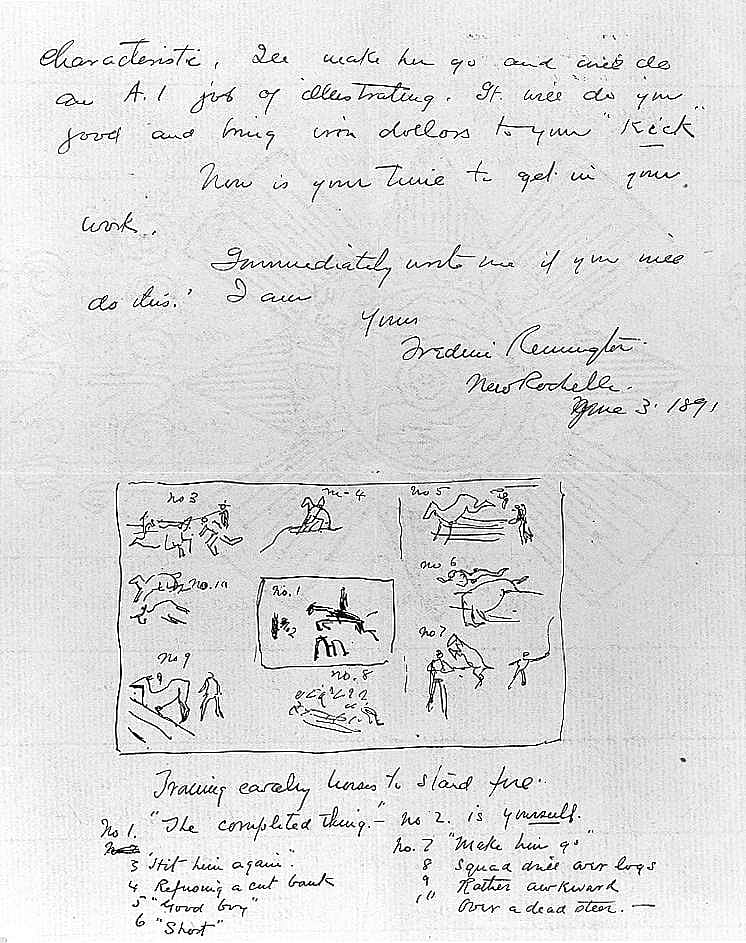 characteristic. I'll make her go and will do
an A.1 job of illustrating. It will do you
good and bring iron dollars to your "Kick"
Now is your time to get in your
work.
Immediately write me if you will
do this. I am
Yours
Frederic Remington.
New Rochelle.
June 3. 1891
no 3
no 4
no 5
no. 10
no. 1
no 2
no 6
no 7
no 9
no. 8
Training cavalry horses to stand fire.
No 1. "The completed thing." - no 2. is yourself.
3 "Hit him again".
4 Refusing a cut bank
5 "Good boy"
6 "Short"
no. 7 "Make him go"
8 Squad drill over logs
9 Rather awkward
10 Over a dead steer. —